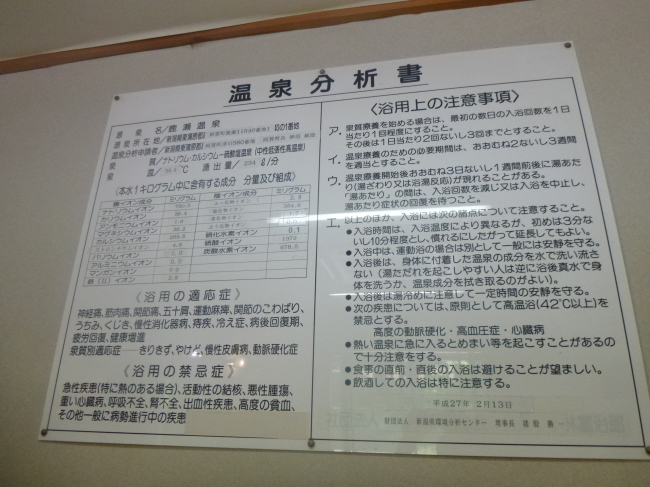 温泉分析書
源泉名/鹿瀬温泉
泉質/ナトリウム・カルシウム―硫酸塩温泉(中性低張性高温泉)
泉温/ ℃ 湧出量/ ℓ/分
〈本水1キログラム中に含有する成分 分量及び組成〉
陽イオン成分 ミリグラム 陰イオン成分 ミリグラム
ナトリウムイオン
カリウムイオン
アンモニウムイオン
マグネシウムイオン 硫化水素イオン 0.1
カルシウムイオン 硫酸イオン
炭酸水素イオン
バリウムイオン
アルミニウムイオン
マンガンイオン
鉄(Ⅱ)イオン
〈浴用の適応症〉
神経痛、筋肉痛、関節痛、五十肩、運動麻痺、関節のこわばり、
うちみ、くじき、慢性消化器病、痔疾、冷え症、病後回復期、
疲労回復、健康増進
泉質別適応症――きりきず、やけど、慢性皮膚病、動脈硬化症
〈浴用の禁忌症〉
急性疾患(特に熱のある場合)、活動性の結核、悪性腫瘍、
重い心臓病、呼吸不全、腎不全、出血性疾患、高度の貧血、
その他一般に病勢進行中の疾患
〈浴用上の注意事項〉
ア. 泉質療養を始める場合は、最初の数日の入浴回数を1日
当たり1回程度にすること。
その後は1日当たり2回ないし3回までとすること。
イ. 温泉療養の必要期間は、おおむね2ないし3週間
を適当とすること。
ウ. 温泉療養開始後おおむね3日ないし1週間前後に湯あた
り(湯ざわり又は浴湯反応)が現れることがある。
「湯あたり」の間は、入浴回数を減じ又は入浴を中止し、
湯あたり症状の回復を待つこと。
エ. 以上のほか、入浴には次の諸点について注意すること。
●入浴時間は、入浴温度により異なるが、初めは3分な
いし10分程度とし、慣れるにしたがって延長してもよい。
●入浴中は、運動浴の場合は別として一般には安静を守る。
●入浴後は、身体に付着した温泉の成分を水で洗い流さ
ない(湯ただれを起こしやすい人は逆に浴後真水で身
体を洗うか、温泉成分を拭き取るのがよい)。
●入浴後は湯冷めに注意して一定時間の安静を守る。
●次の疾患については、原則として高温浴(42℃以上)を
禁忌とする。
高度の動脈硬化・高血圧症・心臓病
●熱い温泉に急に入るとめまい等を起こすことがあるの
で十分注意をする。
●食事の直前・直後の入浴は避けることが望ましい。
●飲酒しての入浴は特に注意する。
平成27年 2月13日
財団法人 新潟県環境分析センター 理事長